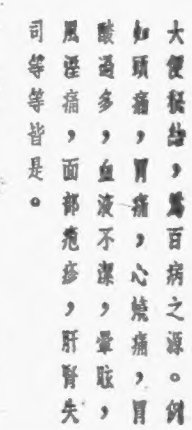 大便秘結，爲百病之源。例
如頭痛，胃痛，心燒痛，胃
酸過多，血液不潔，暈眩，
風溼痛，面部疱疹，肝腎失
司等等皆是。